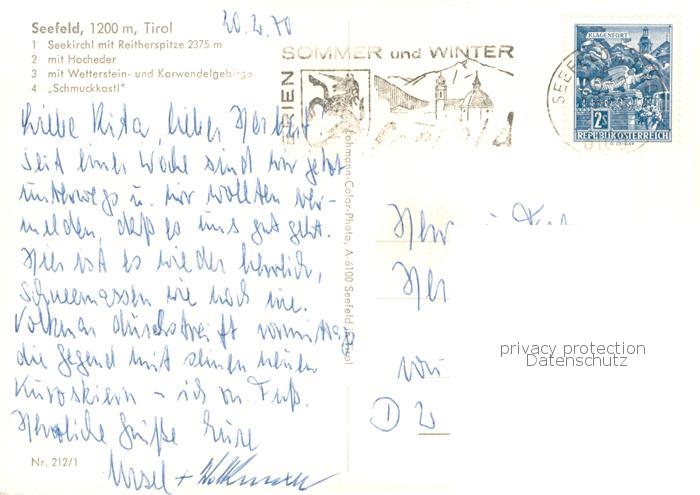 20.2.70
Seefeld, 1200 m, Tirol
1 Seekirchl mit Reitherspitze 2375 m
2 mit Hocheder
3 mit Wetterstein- und Karwendelgebirge
4 „Schmuckkastl"
FERIEN SOMMER und WINTER
KLAGENFURT
2S
REPUBLIK ÖSTERREICH
SEEF
Liebe Rita, lieber Herbert.
Seit einer Woche sind wir jetzt
unterwegs u. wir wollten ver-
melden, daß es uns gut geht.
Hier ist es wieder herrlich,
Schneemassen wie noch nie.
Volkmar durchstreift vormittags
die Gegend mit seinen neuen
Kurzskiern - ich zu Fuß.
Herzliche Grüße Eure
Ursel + Volkmar
Lohmann-Color-Photo, A-6100 Seefeld i. Tirol
Nr. 212/1
privacy protection
Datenschutz
D